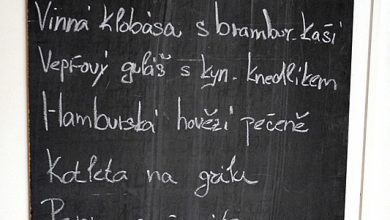 Vinná klobása s brambur. kaší
Vepřový guláš s kyn. knedlíkem
Hamburská hovězí pečeně
Kotleta na grilu